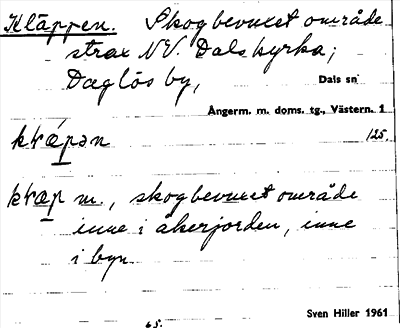 Kläppen. Skogbevuxet område
strax NV. Dals kyrka;
Daglös by,
Dals sn
Ångerm. m. doms. tg., Västern. 1
125.
m., skogbevuxet område
inne i åkerjorden, inne
i byn.
Sven Hiller 1961
65.